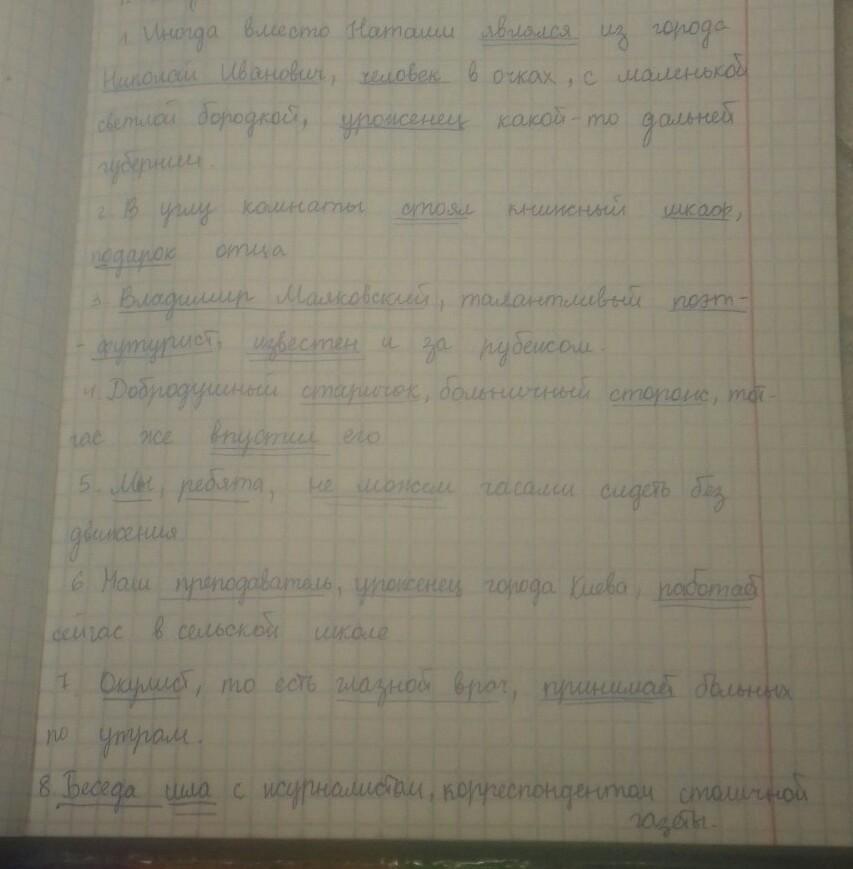 1. Иногда вместо Наташи являлся из города
Николай Иванович, человек в очках, с маленькой
светлой бородкой, уроженец какой-то дальней
губернии.
2. В углу комнаты стоял книжный шкаф,
подарок отца
3. Владимир Маяковский, талантливый поэт-
-футурист, известен и за рубежом.
4. Добродушный старичок, больничный сторож, тот-
час же впустил его
5. Мы, ребята, не можем часами сидеть без
движения
6 Наш преподаватель, уроженец города Киева, работает
сейчас в сельской школе
7. Окулист, то есть глазной врач, принимает больных
по утрам.
8. Беседа шла с журналистом, корреспондентом столичной
газеты.